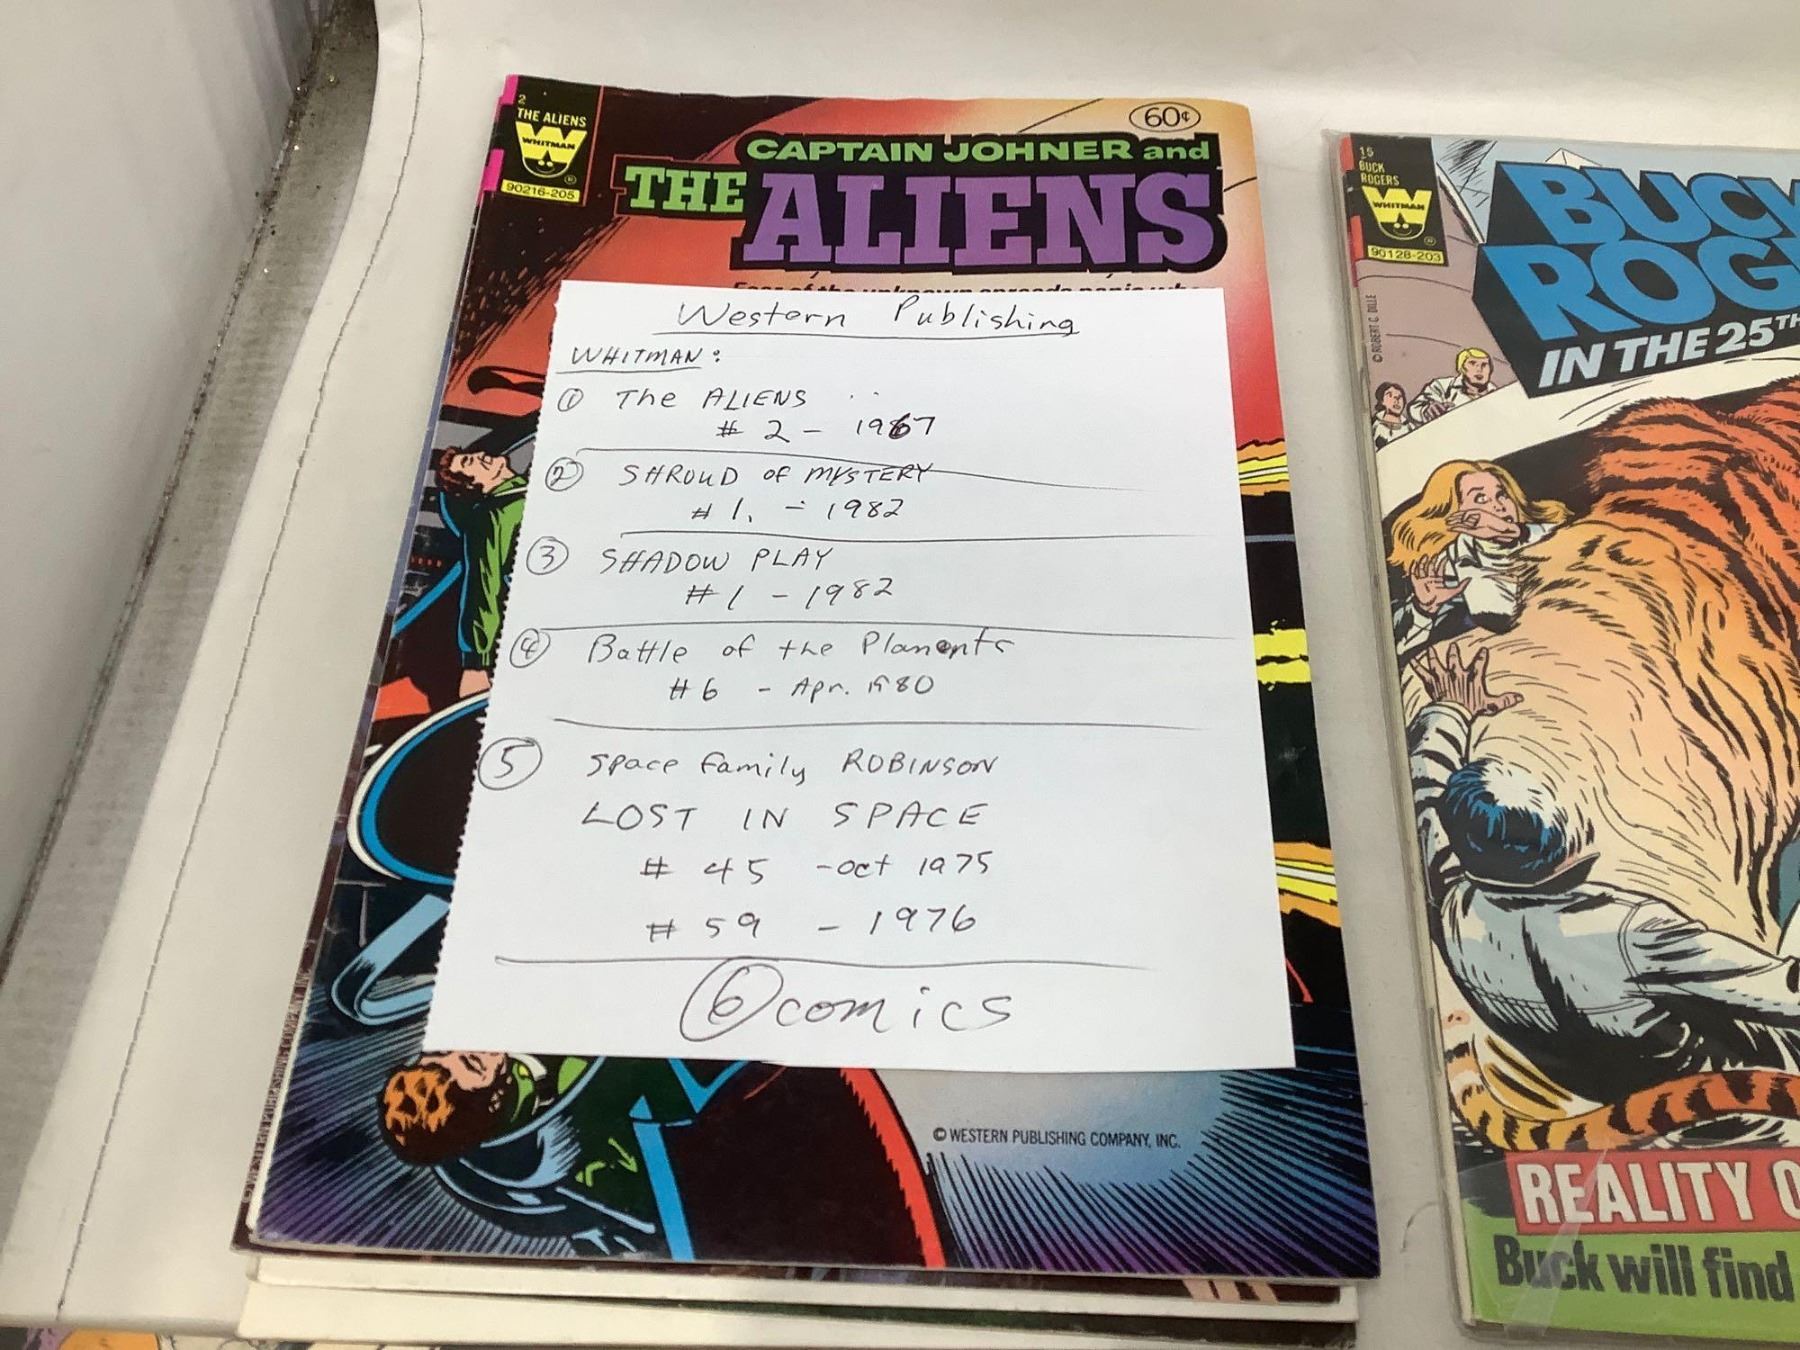 2
THE ALIENS
WHITMAN
®
90216-205
60¢
CAPTAIN JOHNER and
THE ALIENS
Western Publishing
WHITMAN:
① The ALIENS
# 2 - 1967
② SHROUD of MYSTERY
# 1. - 1982
③ SHADOW PLAY
#1 - 1982
④ Battle of the Planents
#6 - Apr. 1980
⑤ Space family ROBINSON
LOST IN SPACE
# 45 - oct 1975
# 59 - 1976
⑥ comics
© WESTERN PUBLISHING COMPANY, INC.
15
BUCK
ROGERS
WHITMAN
®
90128-203
© ROBERT C. DILLE
BUCK
ROG
IN THE 25TH
REALITY O
Buck will find